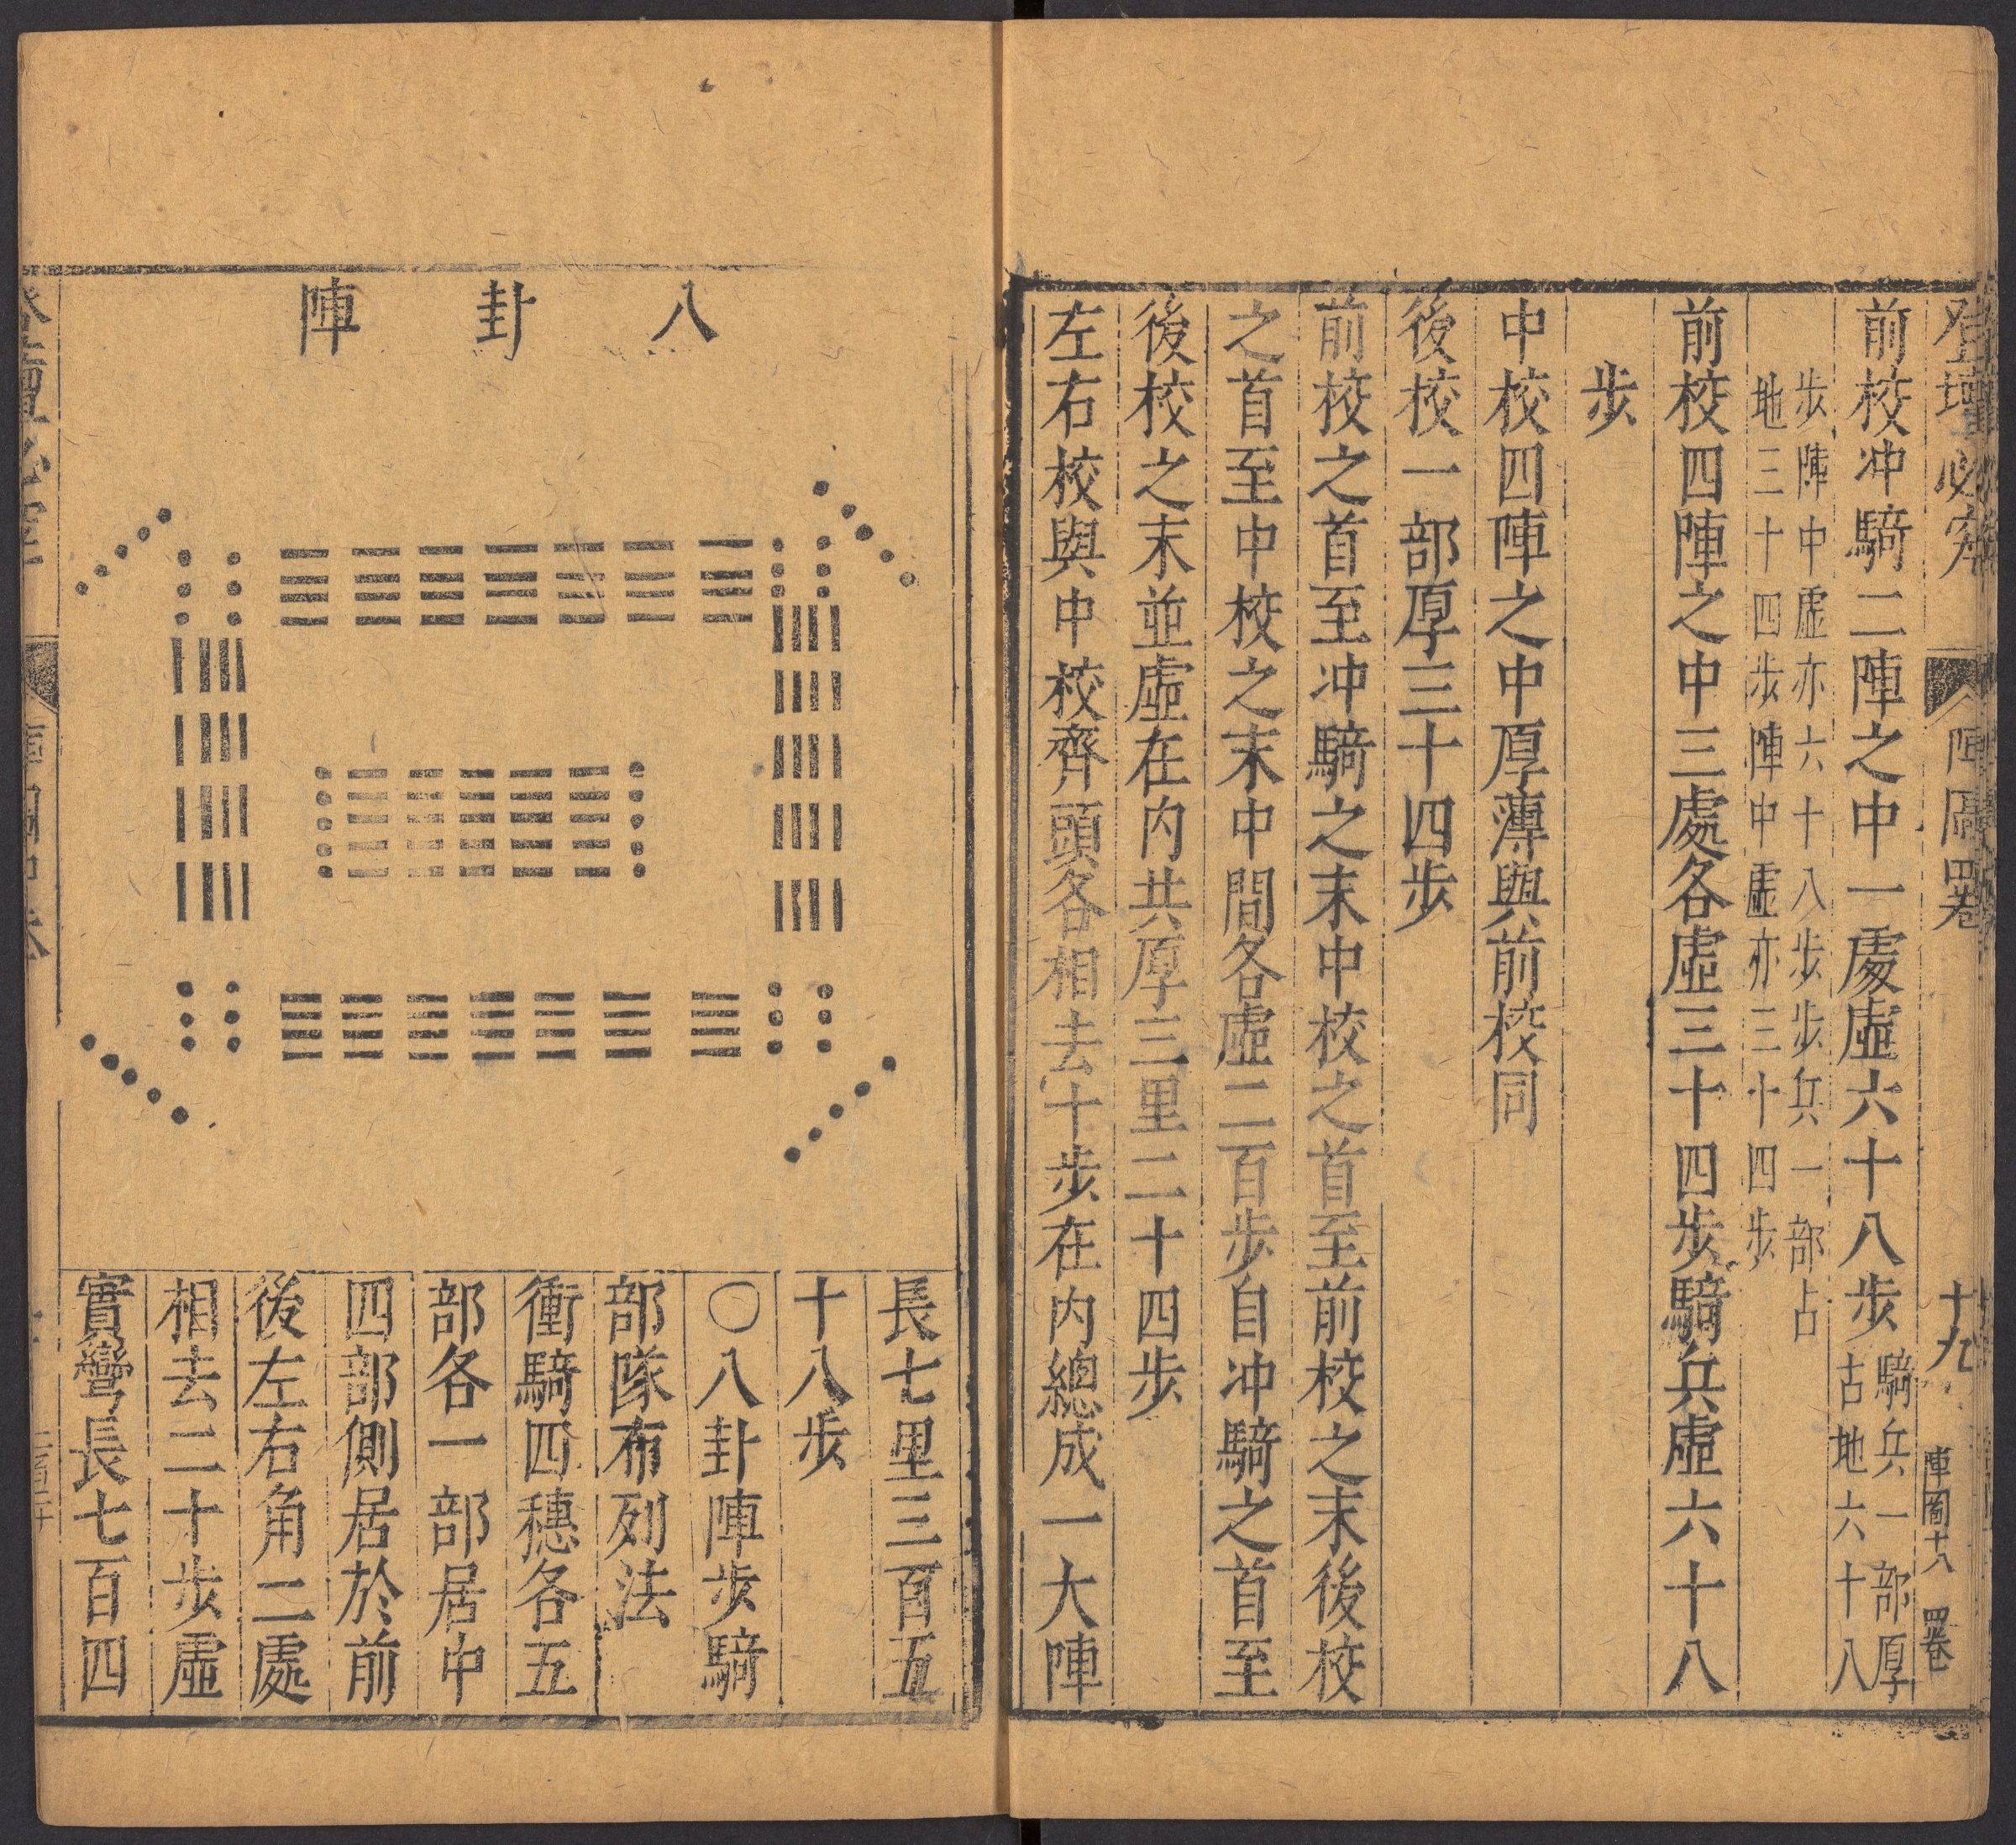 登壇必究
陣圖
四卷
十九
陣圖十八
四卷
前校冲騎二陣之中一處虛六十八步
騎兵一部厚
古地六十八
步陣中虛亦六十八步步兵一部占
地三十四步陣中虛亦三十四步
前校四陣之中三處各虛三十四步騎兵虛六十八
步
中校四陣之中厚薄與前校同
後校一部厚三十四步
前校之首至冲騎之末中校之首至前校之末後校
之首至中校之末中間各虛二百步自冲騎之首至
後校之末並虛在內共厚三里二十四步
左右校與中校齊頭各相去十步在內總成一大陣
八卦陣
長七里三百五
十八步
〇八卦陣步騎
部隊布列法
衝騎四穗各五
部各一部居中
四部側居於前
後左右角二處
相去二十步虛
實彎長七百四